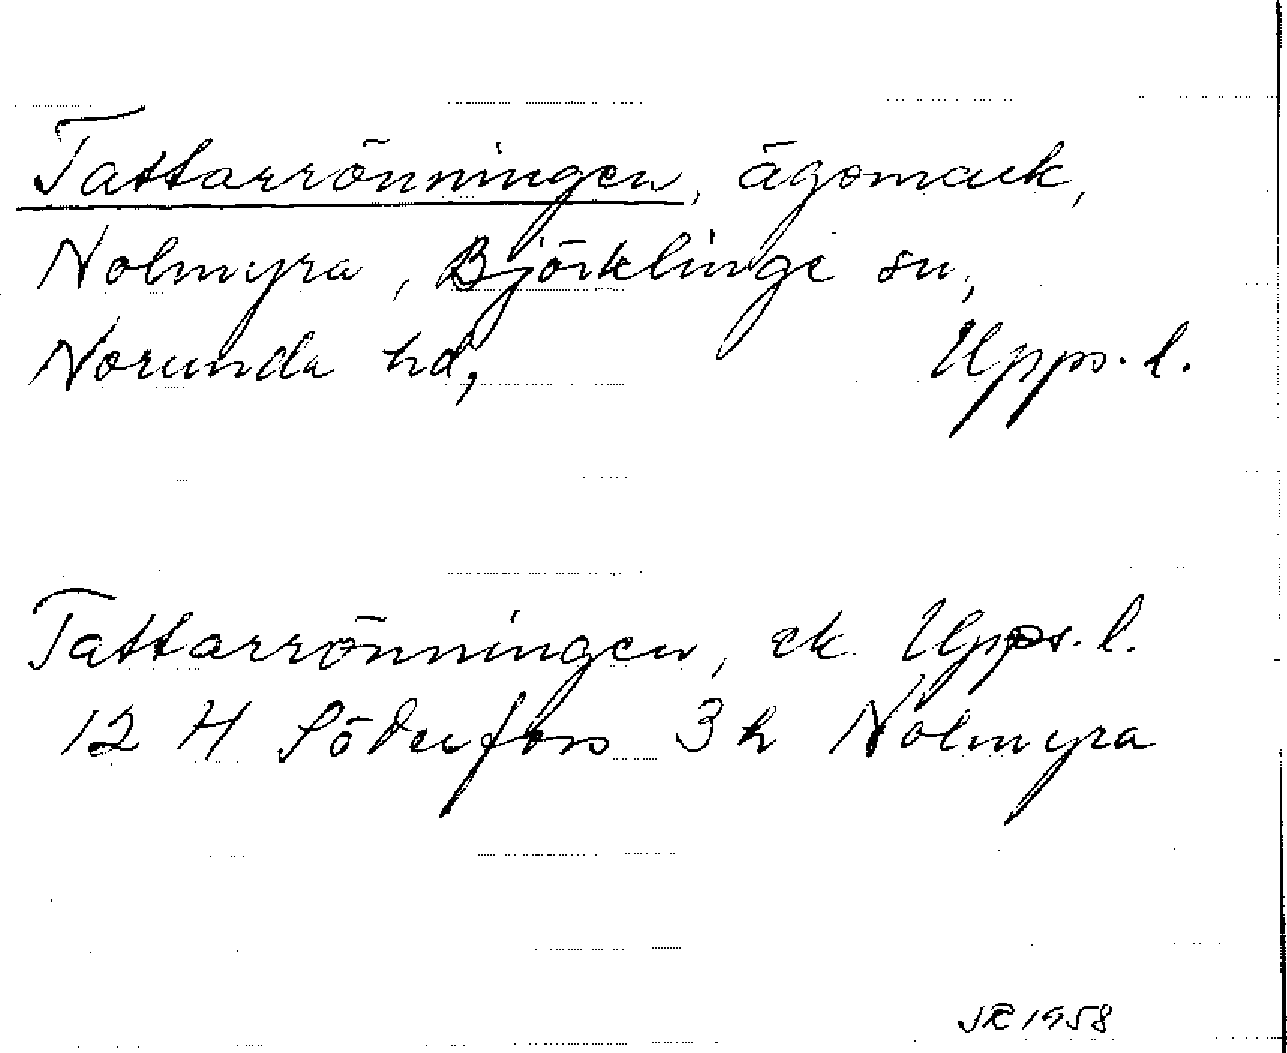 Tattarrönningen, ägomark,
Nolmyra, Björklinge sn,
Norunda hd, Upps. l.
Tattarrönningen, ek. Upps. l.
12 H Söderfors 3 h Nolmyra
1958